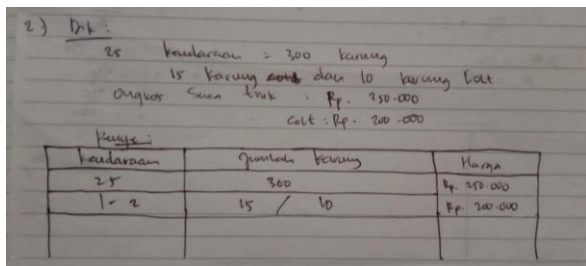 2) Dik :
25 kendaraan = 300 karung
15 karung dan 10 karung Colt
ongkos sewa truk : Rp. 250.000
Colt : Rp. 200.000
Kendaraan Jumlah karung Harga
25 300 Rp. 250.000
1 - 2 15 / 10 Rp. 200.000